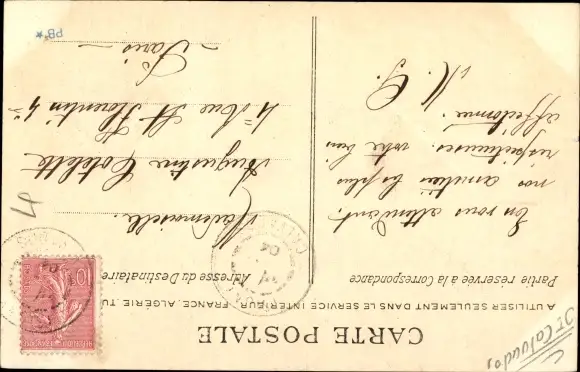 CARTE POSTALE
A UTILISER SEULEMENT DANS LE SERVICE INTÉRIEUR, FRANCE, ALGÉRIE, TU
Partie réservée à la Correspondance
Adresse du Destinataire
En vous attendant,
nos amitiés les plus
respectueuses. votre bien
affectionné.
Mademoiselle
Augustine Cotelette
4 Rue St Florentin 4
Paris
10
04
PB*
Dt Calvados